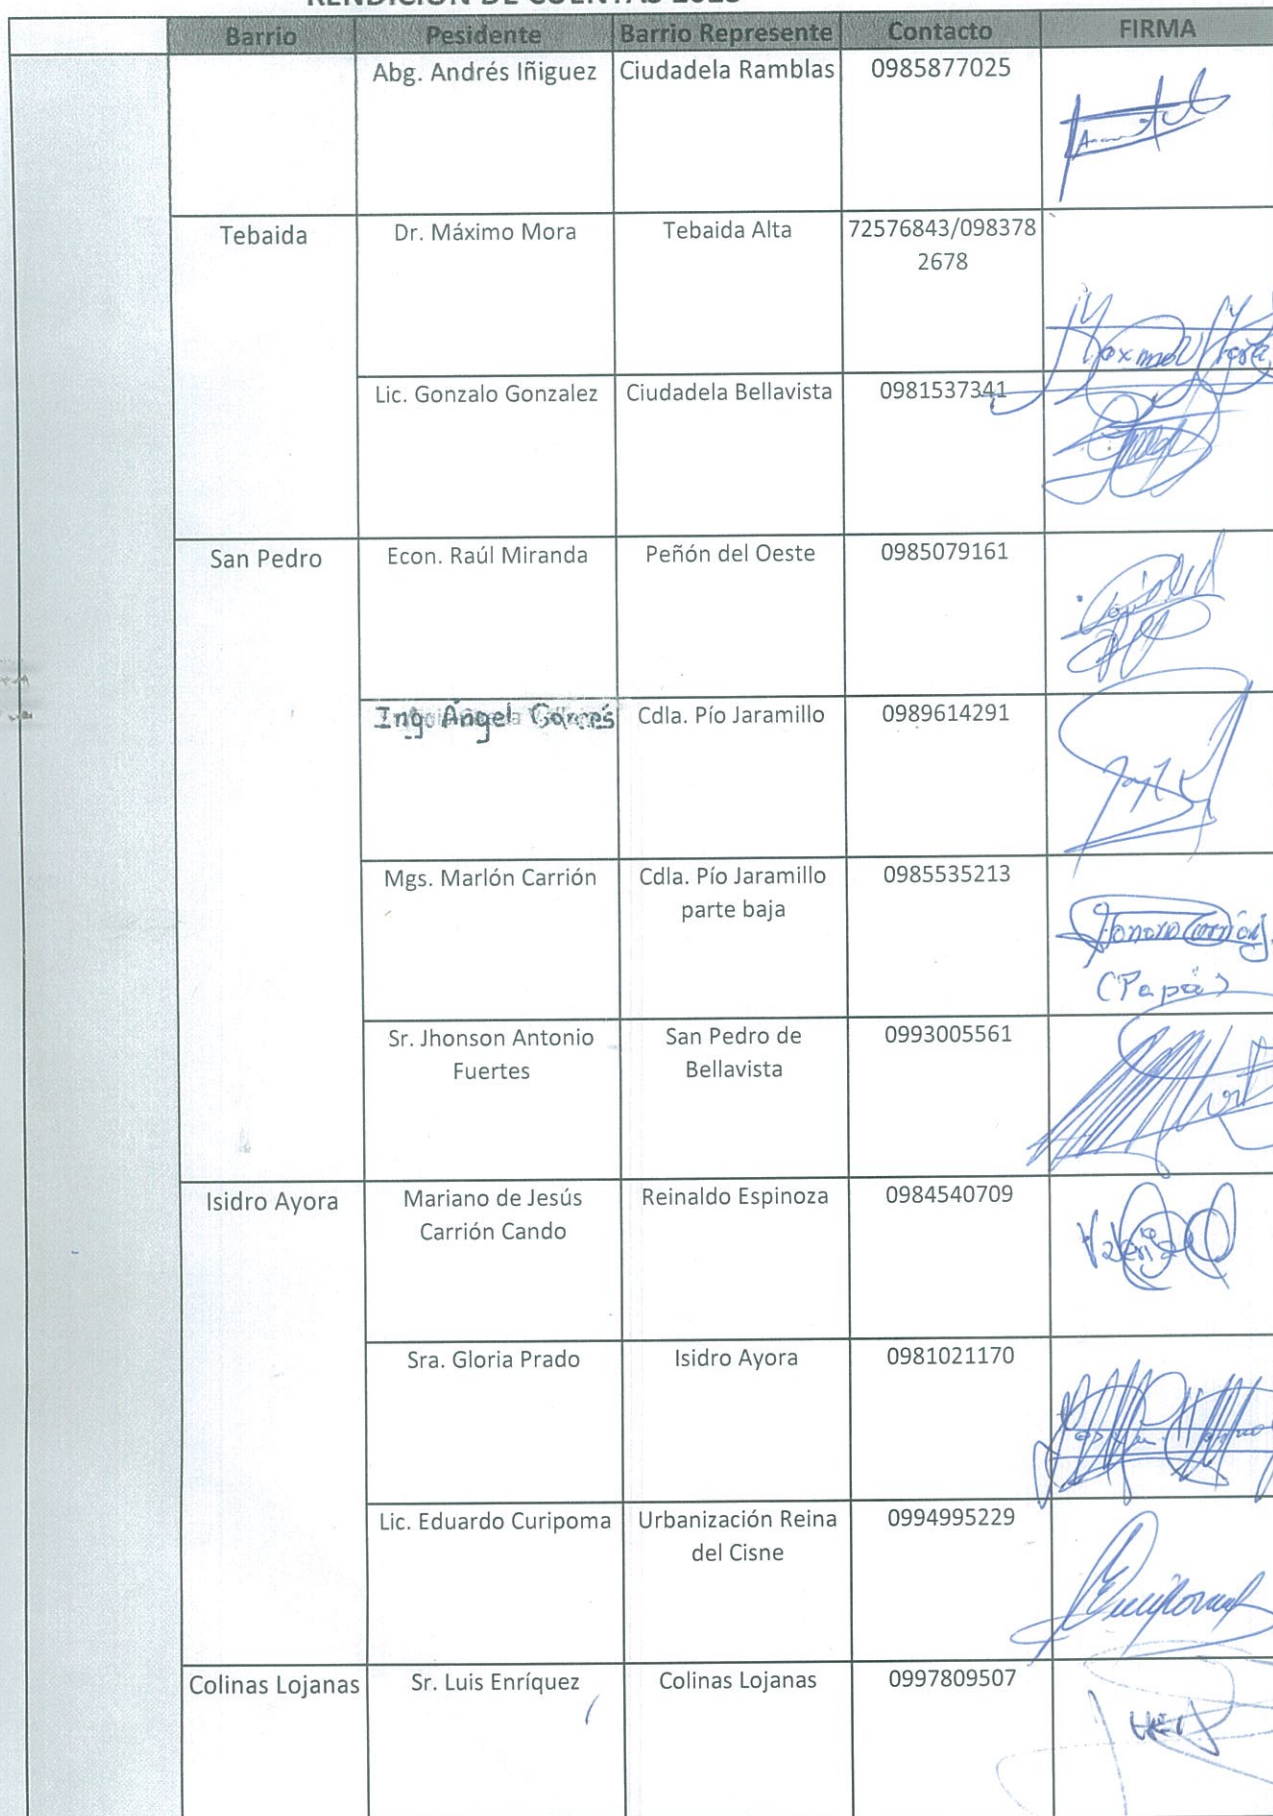 RENDICIÓN DE CUENTAS 2023
Barrio Pesidente Barrio Represente Contacto FIRMA
Abg. Andrés Iñiguez Ciudadela Ramblas 0985877025
Tebaida Dr. Máximo Mora Tebaida Alta 72576843/098378
2678
Lic. Gonzalo Gonzalez Ciudadela Bellavista 0981537341
San Pedro Econ. Raúl Miranda Peñón del Oeste 0985079161
Ing. Ángel Garcés Cdla. Pío Jaramillo 0989614291
Mgs. Marlón Carrión Cdla. Pío Jaramillo 0985535213
parte baja
(Papá)
Sr. Jhonson Antonio San Pedro de 0993005561
Fuertes Bellavista
Isidro Ayora Mariano de Jesús Reinaldo Espinoza 0984540709
Carrión Cando
Sra. Gloria Prado Isidro Ayora 0981021170
Lic. Eduardo Curipoma Urbanización Reina 0994995229
del Cisne
Colinas Lojanas Sr. Luis Enríquez Colinas Lojanas 0997809507